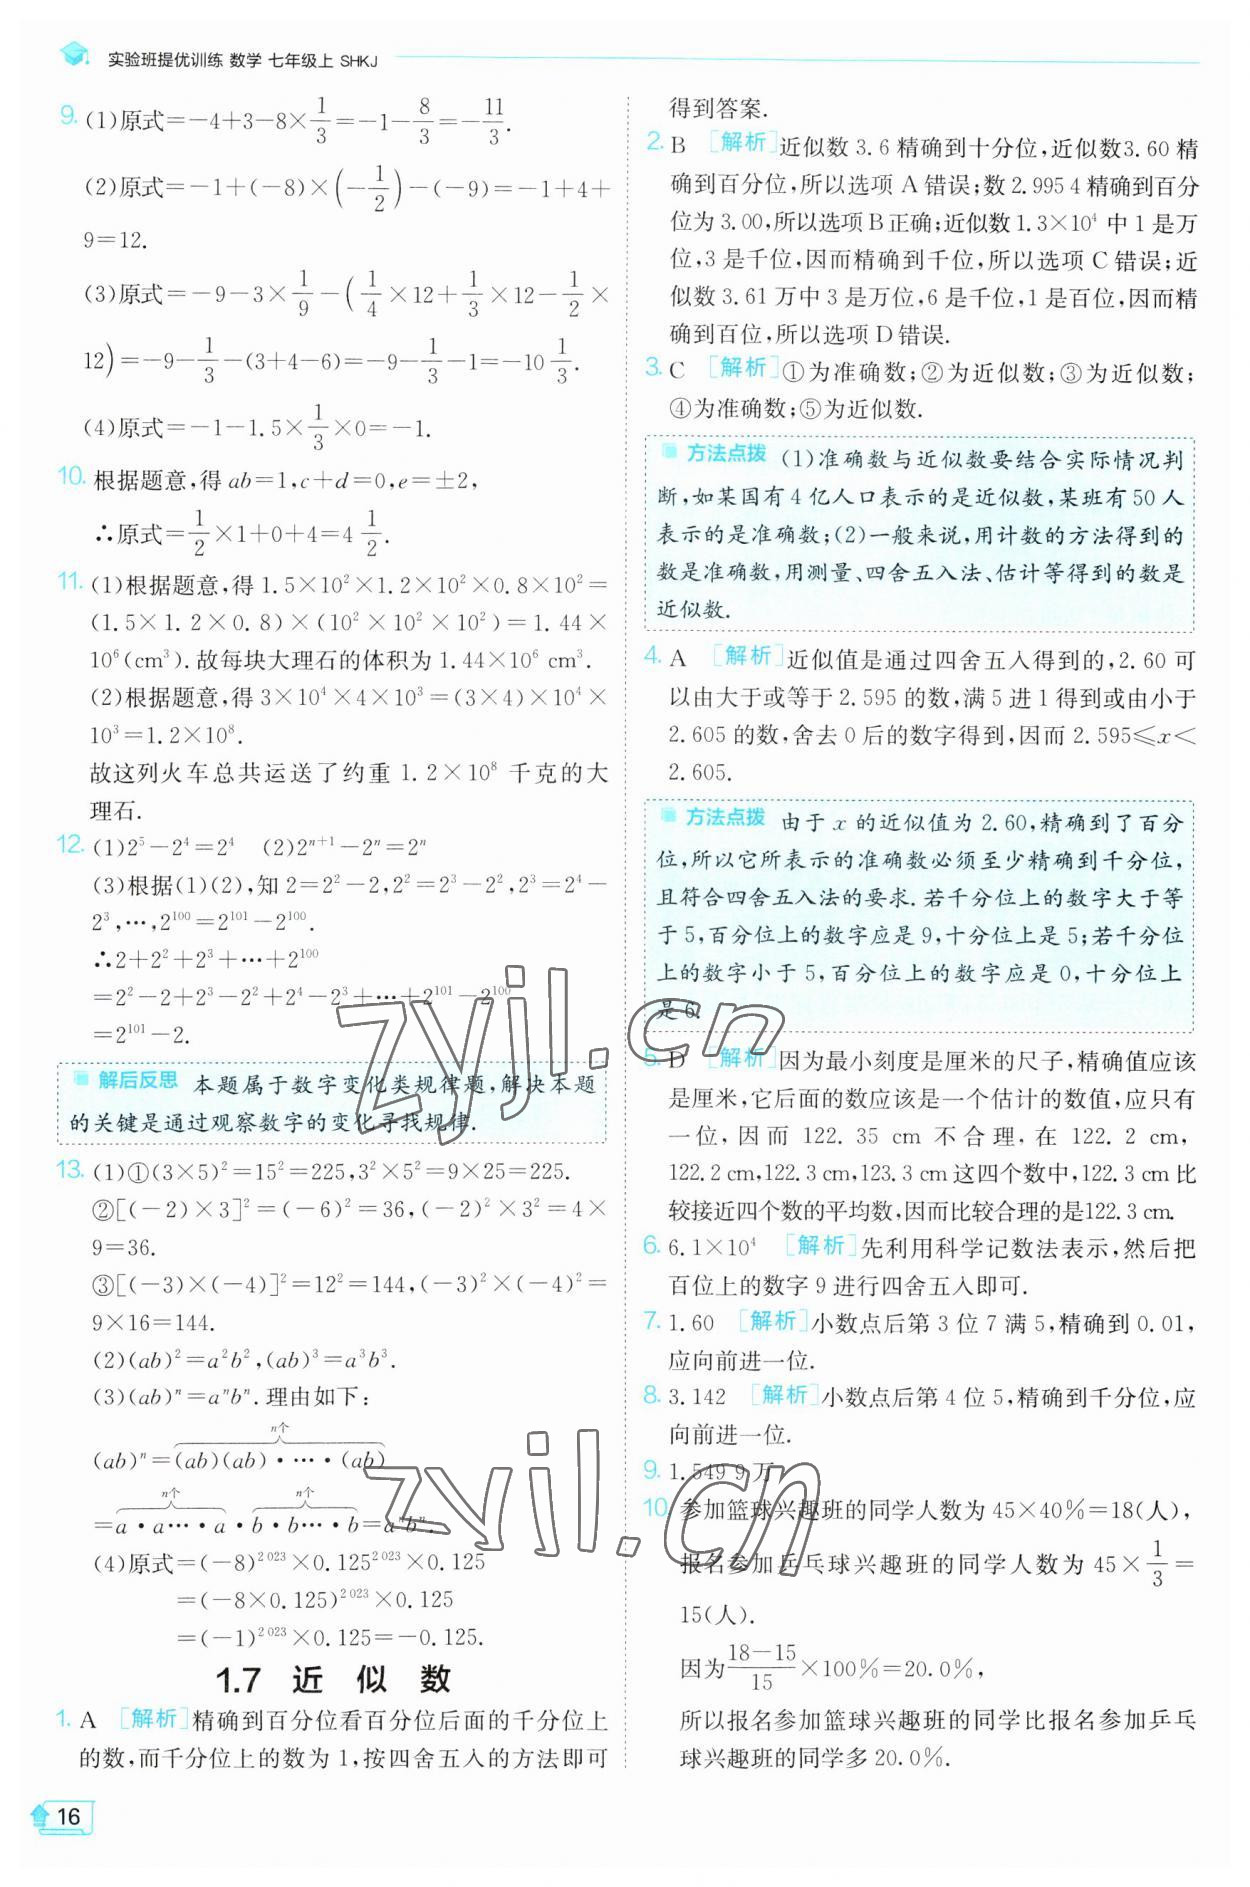 实验班提优训练 数学 七年级上 SHKJ
9. (1)原式=-4+3-8×1/3=-1-8/3=-11/3.
(2)原式=-1+(-8)×(-1/2)-(-9)=-1+4+
9=12.
(3)原式=-9-3×1/9-(1/4×12+1/3×12-1/2×
12)=-9-1/3-(3+4-6)=-9-1/3-1=-10 1/3.
(4)原式=-1-1.5×1/3×0=-1.
10. 根据题意,得 ab=1,c+d=0,e=±2,
∴原式=1/2×1+0+4=4 1/2.
11. (1)根据题意,得 1.5×10²×1.2×10²×0.8×10²=
(1.5×1.2×0.8)×(10²×10²×10²)=1.44×
10⁶(cm³).故每块大理石的体积为 1.44×10⁶ cm³.
(2)根据题意,得 3×10⁴×4×10³=(3×4)×10⁴×
10³=1.2×10⁸.
故这列火车总共运送了约重 1.2×10⁸ 千克的大
理石.
12. (1)2⁵-2⁴=2⁴ (2)2ⁿ⁺¹-2ⁿ=2ⁿ
(3)根据(1)(2),知 2=2²-2,2²=2³-2²,2³=2⁴-
2³,…,2¹⁰⁰=2¹⁰¹-2¹⁰⁰.
∴2+2²+2³+…+2¹⁰⁰
=2²-2+2³-2²+2⁴-2³+…+2¹⁰¹-2¹⁰⁰
=2¹⁰¹-2.
解后反思 本题属于数字变化类规律题,解决本题
的关键是通过观察数字的变化寻找规律.
13. (1)①(3×5)²=15²=225,3²×5²=9×25=225.
②[(-2)×3]²=(-6)²=36,(-2)²×3²=4×
9=36.
③[(-3)×(-4)]²=12²=144,(-3)²×(-4)²=
9×16=144.
(2)(ab)²=a²b²,(ab)³=a³b³.
(3)(ab)ⁿ=aⁿbⁿ.理由如下:
n个
(ab)ⁿ=(ab)(ab)·…·(ab)
n个 n个
=a·a…·a·b·b…·b=aⁿbⁿ.
(4)原式=(-8)²⁰²³×0.125²⁰²³×0.125
=(-8×0.125)²⁰²³×0.125
=(-1)²⁰²³×0.125=-0.125.
1.7 近似数
1. A [解析]精确到百分位看百分位后面的千分位上
的数,而千分位上的数为 1,按四舍五入的方法即可
16
得到答案.
2. B [解析]近似数 3.6 精确到十分位,近似数3.60 精
确到百分位,所以选项 A 错误;数 2.995 4 精确到百分
位为 3.00,所以选项 B 正确;近似数 1.3×10⁴ 中 1 是万
位,3 是千位,因而精确到千位,所以选项 C 错误;近
似数 3.61 万中 3 是万位,6 是千位,1 是百位,因而精
确到百位,所以选项 D 错误.
3. C [解析]①为准确数;②为近似数;③为近似数;
④为准确数;⑤为近似数.
方法点拨 (1)准确数与近似数要结合实际情况判
断,如某国有 4 亿人口表示的是近似数,某班有 50 人
表示的是准确数;(2)一般来说,用计数的方法得到的
数是准确数,用测量、四舍五入法、估计等得到的数是
近似数.
4. A [解析]近似值是通过四舍五入得到的,2.60 可
以由大于或等于 2.595 的数,满 5 进 1 得到或由小于
2.605 的数,舍去 0 后的数字得到,因而 2.595≤x<
2.605.
方法点拨 由于 x 的近似值为 2.60,精确到了百分
位,所以它所表示的准确数必须至少精确到千分位,
且符合四舍五入法的要求.若千分位上的数字大于等
于 5,百分位上的数字应是 9,十分位上是 5;若千分位
上的数字小于 5,百分位上的数字应是 0,十分位上
是 6.
5. D [解析]因为最小刻度是厘米的尺子,精确值应该
是厘米,它后面的数应该是一个估计的数值,应只有
一位,因而 122.35 cm 不合理,在 122.2 cm,
122.2 cm,122.3 cm,123.3 cm 这四个数中,122.3 cm 比
较接近四个数的平均数,因而比较合理的是122.3 cm.
6. 6.1×10⁴ [解析]先利用科学记数法表示,然后把
百位上的数字 9 进行四舍五入即可.
7. 1.60 [解析]小数点后第 3 位 7 满 5,精确到 0.01,
应向前进一位.
8. 3.142 [解析]小数点后第 4 位 5,精确到千分位,应
向前进一位.
9. 1.549 9 万
10. 参加篮球兴趣班的同学人数为 45×40%=18(人),
报名参加乒乓球兴趣班的同学人数为 45×1/3=
15(人).
因为(18-15)/15×100%=20.0%,
所以报名参加篮球兴趣班的同学比报名参加乒乓
球兴趣班的同学多 20.0%.
zyjl.cn
zyjl.cn